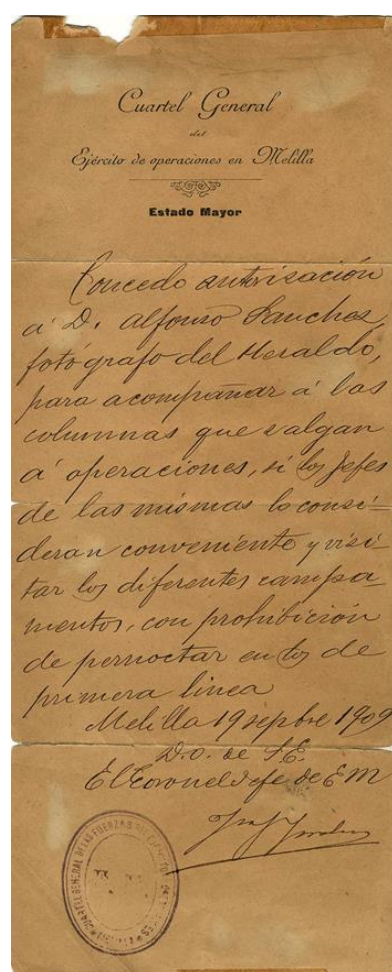 Cuartel General
del
Ejército de operaciones en Melilla
Estado Mayor
Concedo autorisación
á D. Alfonso Sanchez
fotógrafo del Heraldo,
para acompañar á las
columnas que salgan
á operaciones, si los Jefes
de las mismas lo consi-
deran conveniente y visi-
tar los diferentes campa-
mentos, con prohibición
de pernoctar en los de
primera linea
Melilla 19 sepbre 1909
D.O. de S.E.
El Coronel Jefe de E M
CUARTEL GENERAL DE LAS FUERZAS DEL EJERCITO